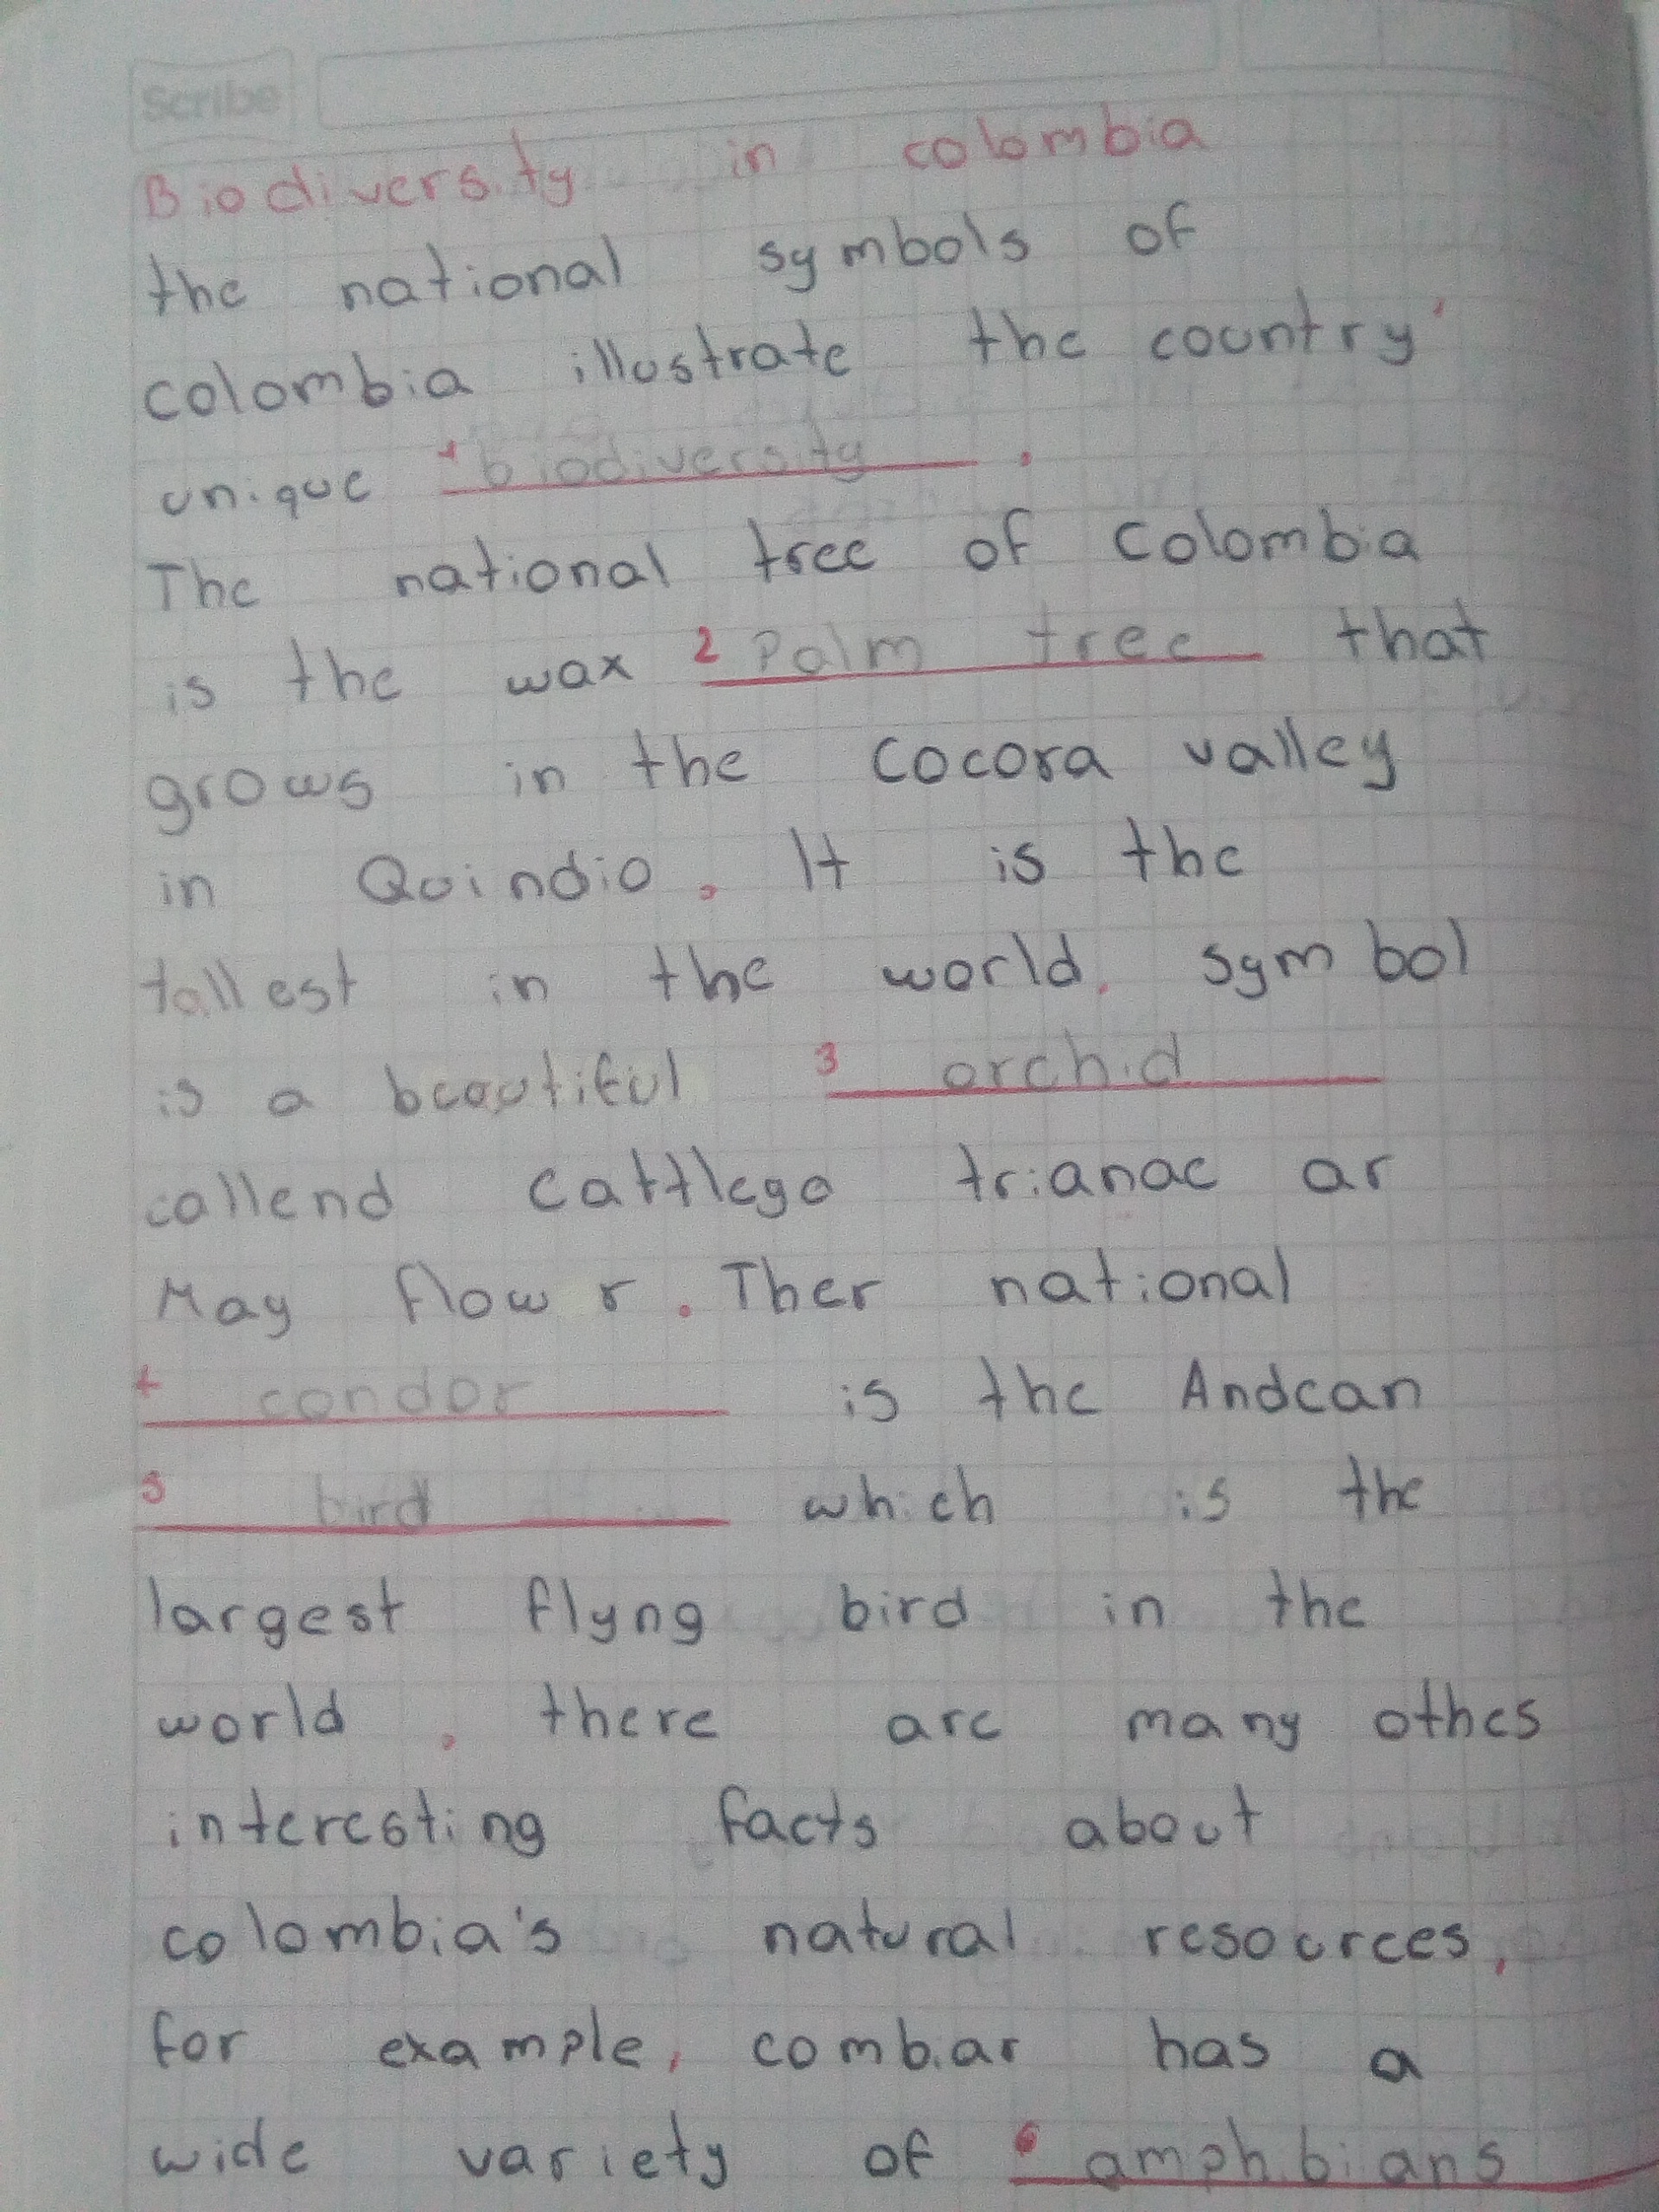 Scribe
Biodiversity in colombia
the national symbols of
colombia illustrate the country'
unique 1 biodiversity .
The national tree of Colombia
is the wax 2 Palm tree that
grows in the cocora valley
in Quindio. It is the
tallest in the world. symbol
is a beautiful 3 orchid
callend cattlega trianae ar
May flow r. Ther national
4 condor is the Andean
5 bird which is the
largest flyng bird in the
world. there are many othes
interesting facts about
colombia's natural resources,
for example, combiar has a
wide variety of 6 amphibians